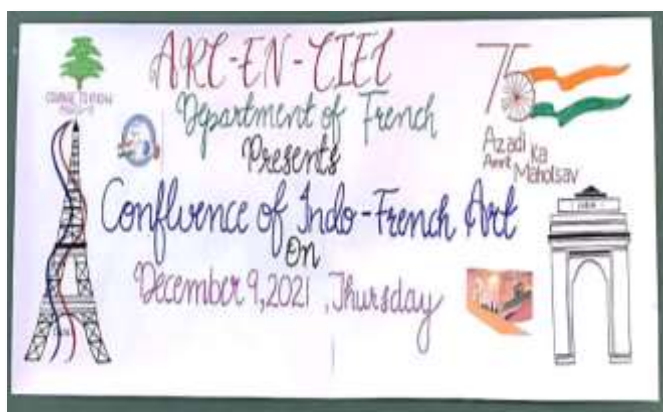 ARC-EN-CIEL
Department of French
Presents
Confluence of Indo-French Art
On
December 9, 2021, Thursday
COURAGE TO KNOW
75
Azadi Ka
Amrit Mahotsav